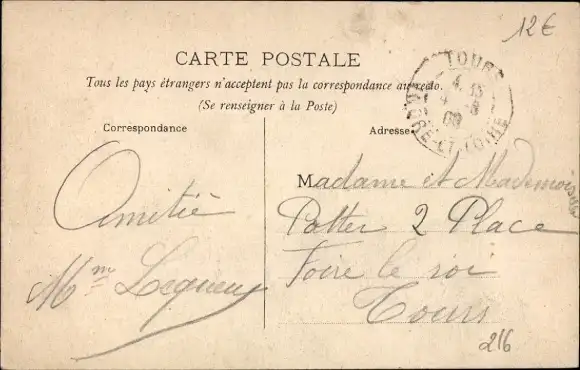 12€
CARTE POSTALE
Tous les pays étrangers n'acceptent pas la correspondance au recto.
(Se renseigner à la Poste)
Correspondance
Adresse
TOURS
INDRE-ET-LOIRE
Amitié
Mme Lequeux
Madame et Mademoiselle
Potter 2 Place
Foire le roi
Tours
216